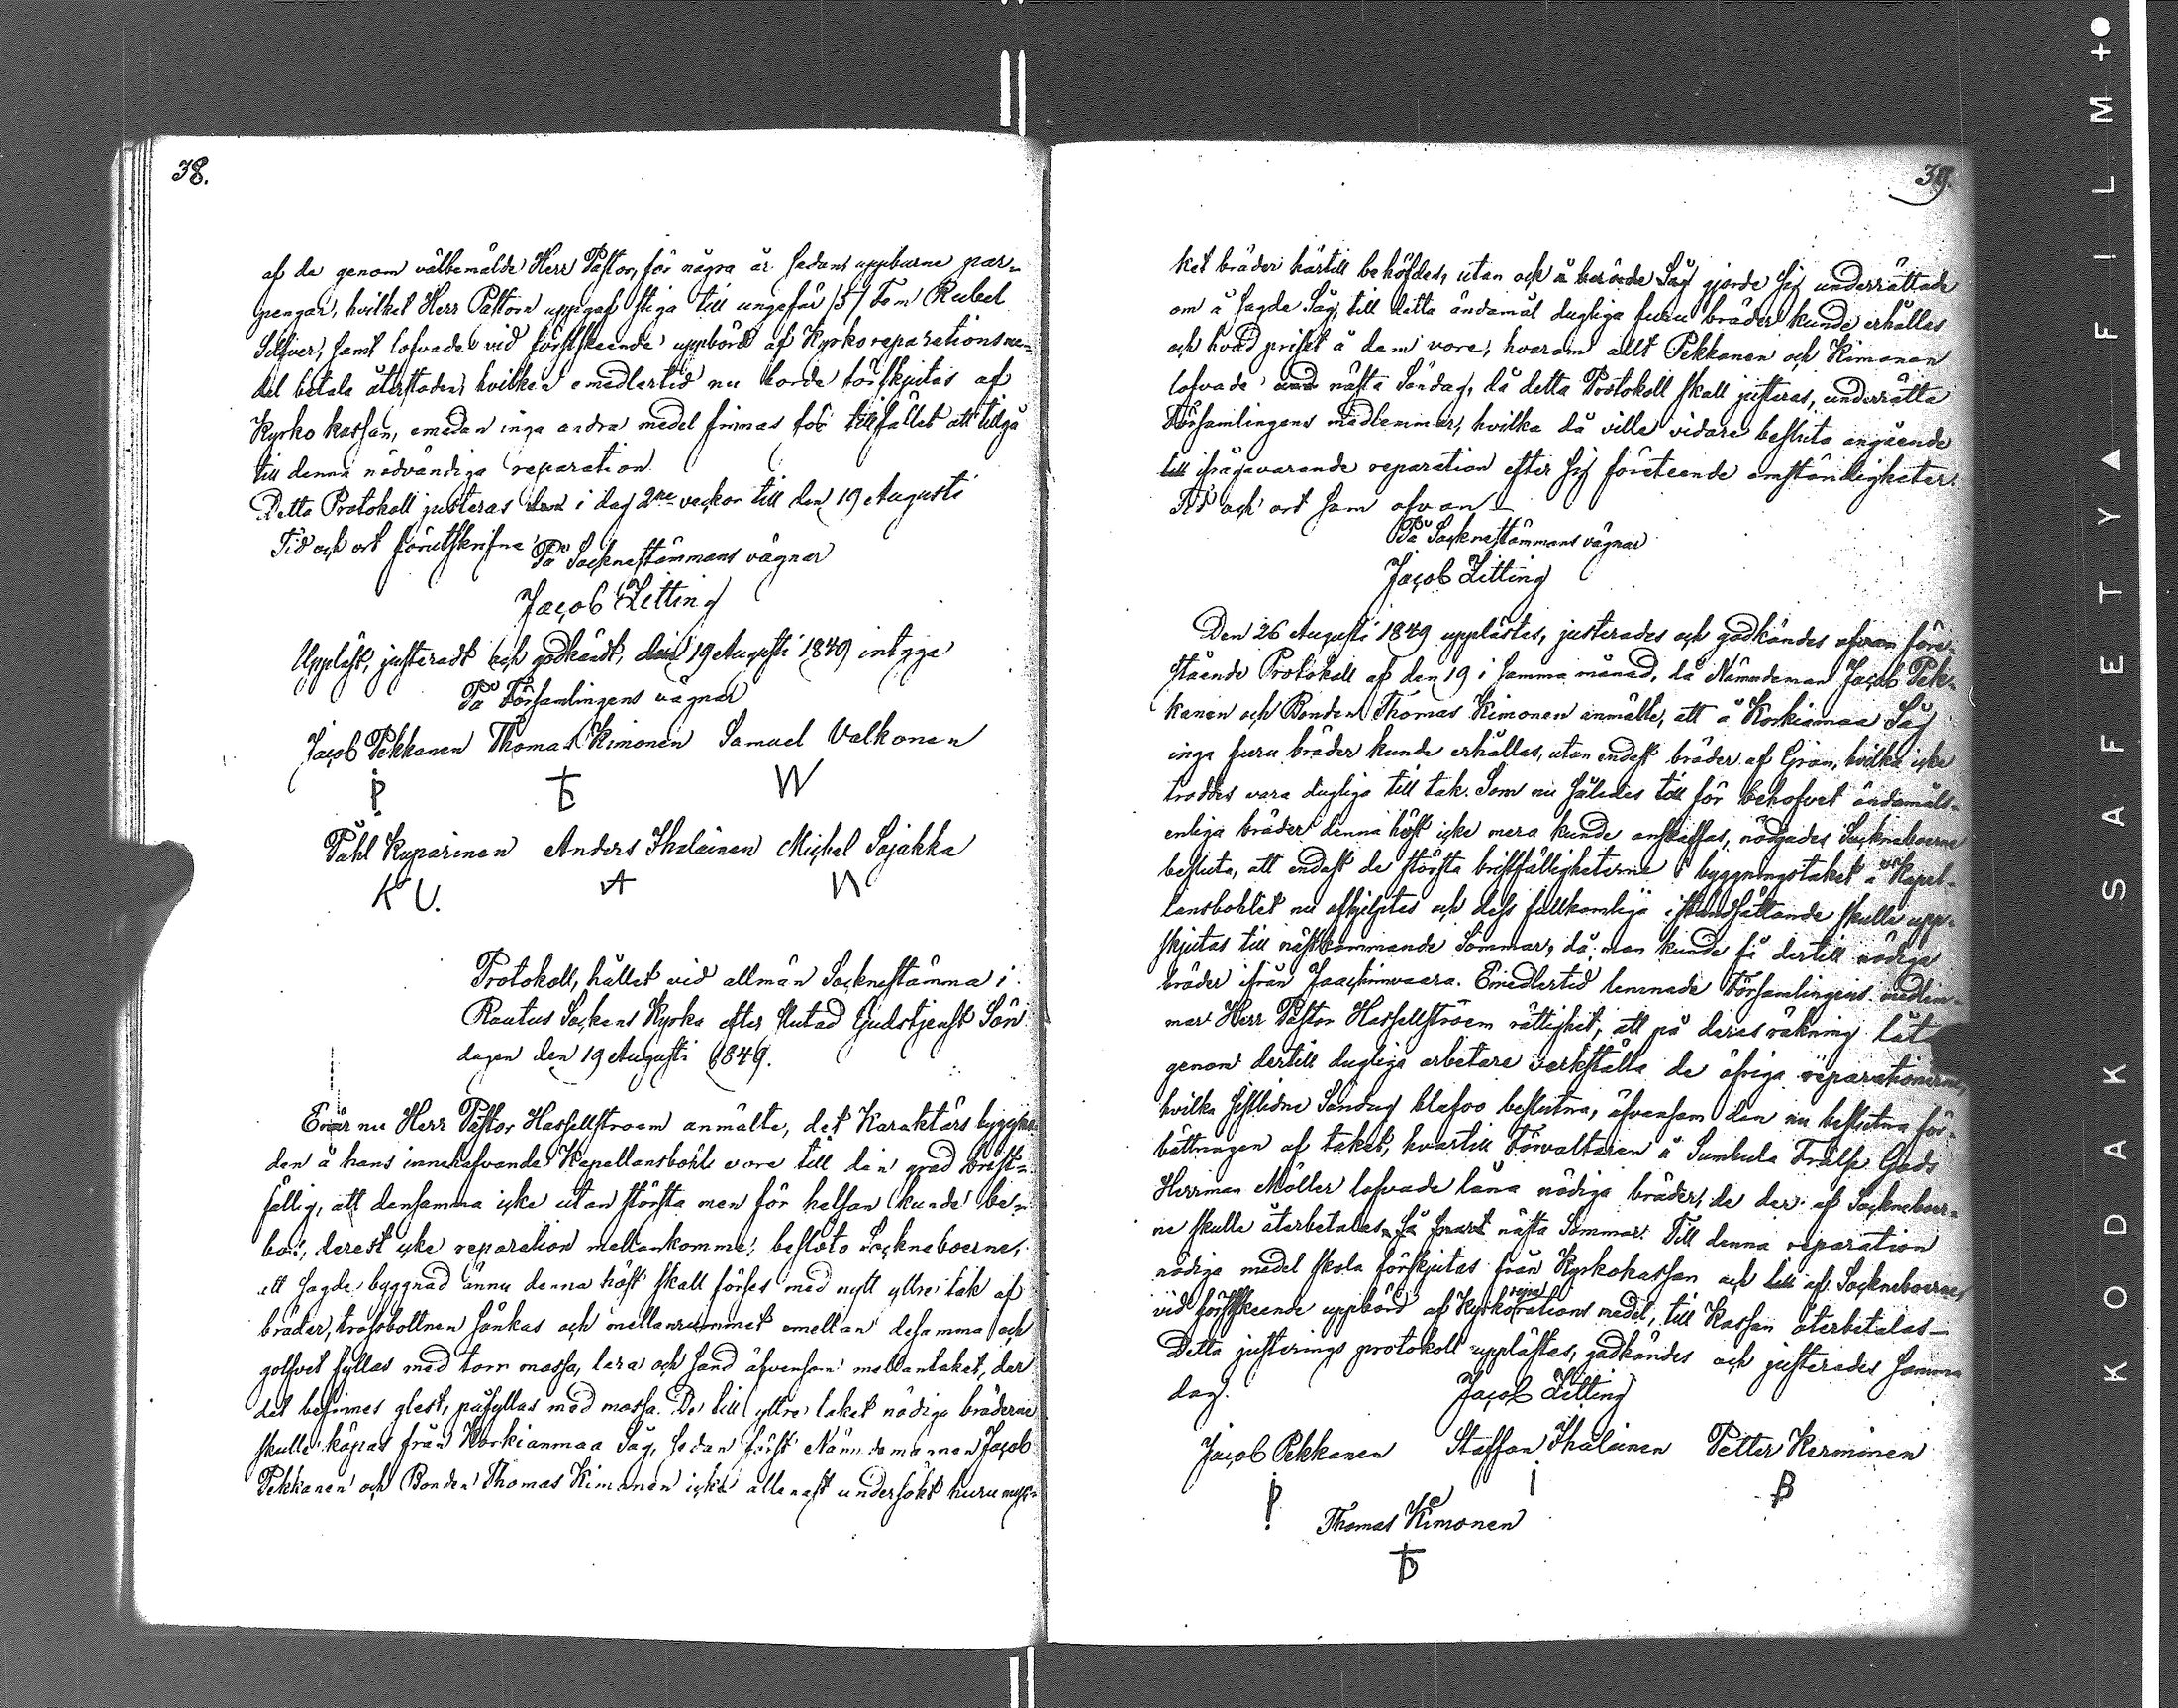 38.
af de genom välbemälde Herr Pastor, för några år sedan uppburne par-
pengar, hvilket Herr Pastorn uppgaf stiga till ungefär /5/ Fem Rubel
Silfver, samt lofvade vid förstskeende uppbörd af Kyrkoreparationsme-
del betala återstoden, hvilken emedlertid nu borde förskjutas af
Kyrko kassan, emedan inga andra medel finnas för tillfället att tillgå
till denna nödvändiga reparation.
Detta Protokoll justeras i dag 2ne veckor till den 19 Augusti
Tid och ort förutskrifne
På Socknestämmans vägnar
Jacob Zitting
Uppläst, justeradt och godkändt, den 19 Augusti 1849 intyga
På Församlingens vägnar
Jacob Pekkanen Thomas Kimonen Samuel Valkonen
P W
Påhl Kuparinen Anders Ihalainen Michel Sojakka
K U. A
Protokoll, hållet vid allmän Socknestämma i
Rautus Sockens Kyrka efter slutad Gudstjenst Sön
dagen den 19 Augusti 1849.
Enär nu Herr Pastor Hassellstroem anmälte, det Karaktärs byggna-
den å hans innehafvande Kapellansbohle vore till den grad brist-
fällig, att densamma icke utan största men för helsan kunde be-
bos, derest icke reparation mellankomme; besluto Sockneboerne,
att sagde byggnad ännu denna höst skall förses med nytt yttre tak af
bräder, trossbottnen sänkas och mellanrummet emellan desamma och
golfvet fyllas med torr mossa, lera och sand äfvensom mellantaket, der
det befinnes glest, påfyllas med mossa. De till yttre taket nödiga bräderne
skulle köpas från Korkianmaa Såg, sedan först Nämndemannen Jacob
Pekkanen och Bonden Thomas Kimonen icke allenast undersökt huru myc-
39.
ket bräder härtill behöfdes, utan ock å berörde Såg gjorde sig underrättade
om å sagde Såg till detta ändamål dugliga furu bräder kunde erhållas
och hvad priset å dem vore, hvarom allt Pekkanen och Kimonen
lofvade nästa Söndag, då detta Protokoll skall justeras, underrätta
Församlingens medlemmar, hvilka då ville vidare besluta angående
ifrågavarande reparation efter sig företeende omständigheter.
Tid och ort som ofvan
På Socknestämmans vägnar
Jacob Zitting
Den 26 Augusti 1849 upplästes, justerades och godkändes ofvan före-
stående Protokoll af den 19 i samma månad, då Nämndeman Jacob Pek-
kanen och Bonden Thomas Kimonen anmälte, att å Korkiamaa Såg
inga furu bräder kunde erhållas, utan endast bräder af Gran, hvilka icke
troddes vara dugliga till tak. Som nu således till för behofvet ändamåls-
enliga bräder denna höst icke mera kunde anskaffas, nödgades Sockneboerne
besluta, att endast de största bristfälligheterne i byggningstaket å Kapel-
lansbohlet nu afhjelptes och dess fullkomliga iståndsättande skulle upp-
skjutas till nästkommande Sommar, då man kunde få dertill nödiga
bräder ifrån Jaachimvaara. Emedlertid lemnade Församlingens medlem-
mar Herr Pastor Hassellstroem rättighet, att på deras räkning låt
genom dertill dugliga arbetare verkställa de öfriga reparationerne,
hvilka sistlidne Söndag blefvo beslutna, äfvensom den nu beslutna för-
bättringen af taket, hvartill Förvaltaren å Sumbula Frälse Gods
Herrman Möller lofvade låna nödiga bräder, de der af Sockneboer-
ne skulle återbetalas så snart nästa Sommar. Till denna reparation
nödiga medel skola förskjutas från Kyrkokassan och af Sockneboerne,
vid förstskeende uppbörd af Kyrkoreparations medel, till Kassan återbetalas—
Detta justerings protokoll upplästes, godkändes och justerades samma
dag.
Jacob Zitting
Jacob Pekkanen Staffan Ihalainen Petter Kerminen
P I B
Thomas Kimonen
KODAK SAFETY ▲ FILM